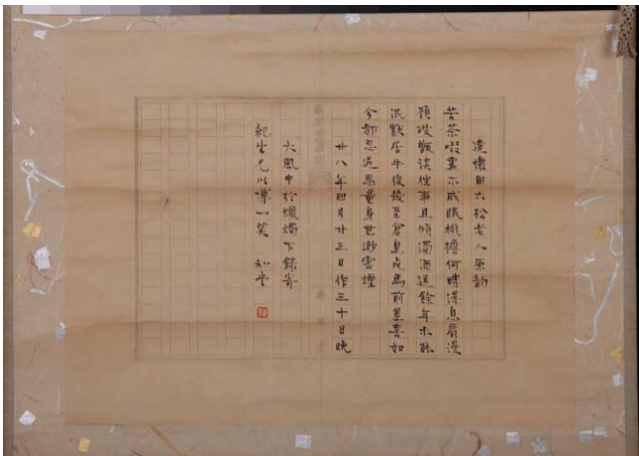 遣懷用六松老人原韻
苦茶啜盡不成眠挑擔何時得息肩漫
顧破甑談往事且傾濁酒送餘年未能
沉默居牛後幾至倉皇走馬前差喜如
今都忘却思量身世渺雲煙
廿八年四月廿三日作三十日晚
大風中於蠟燭下錄奉
紀生兄以博一笑 知堂